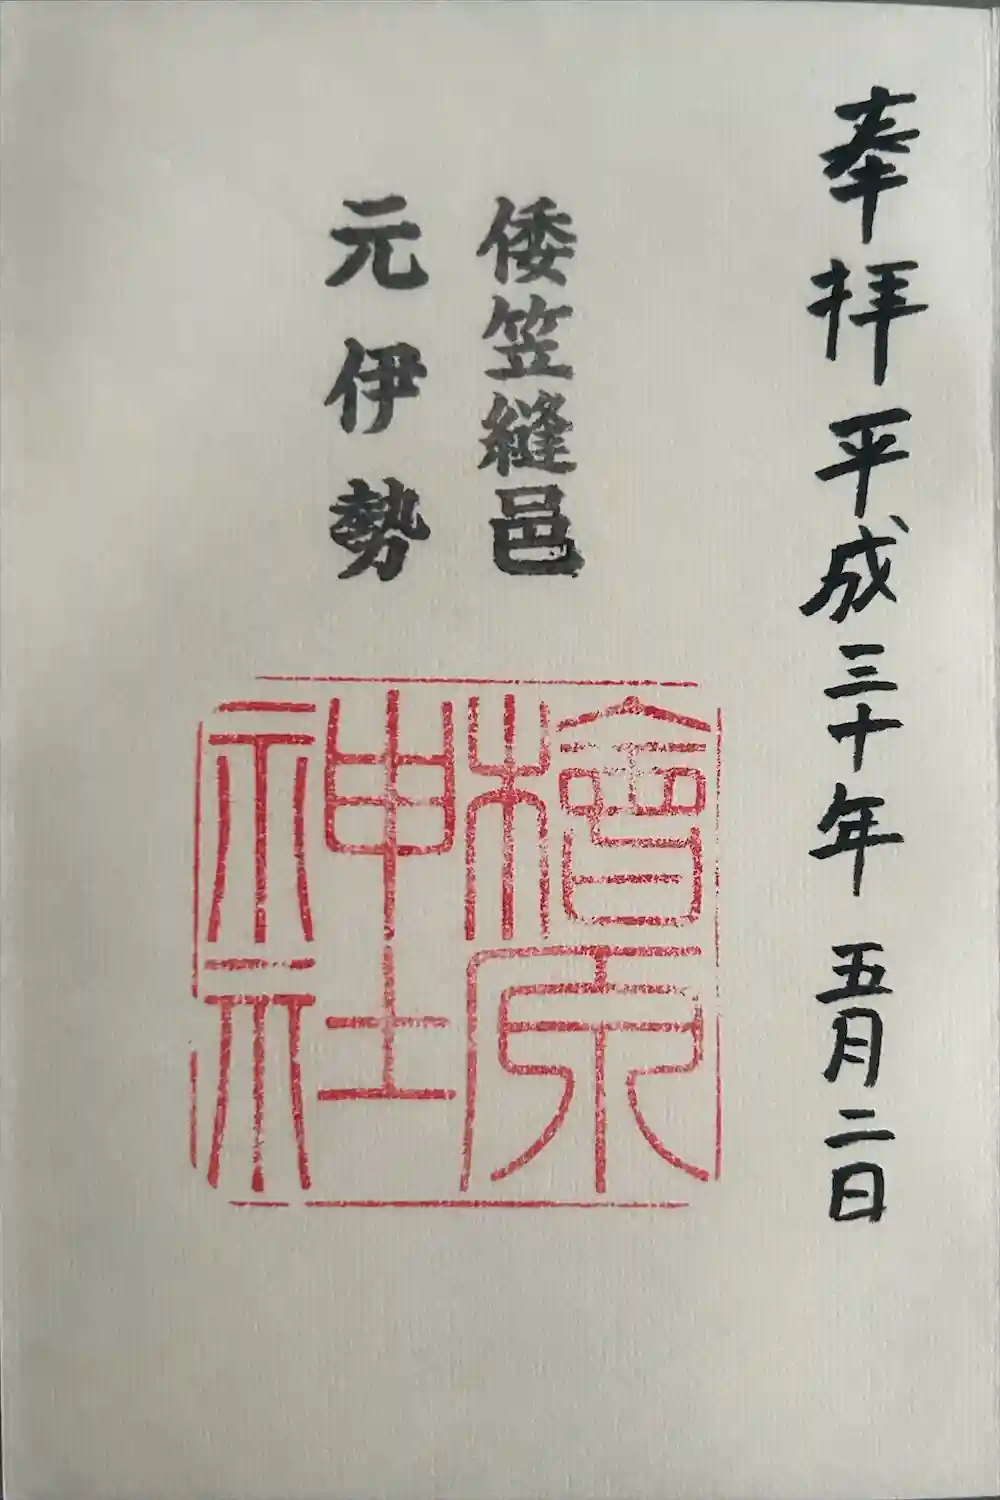 奉拝 平成三十年 五月二日
倭笠縫邑
元伊勢
檜原
神社